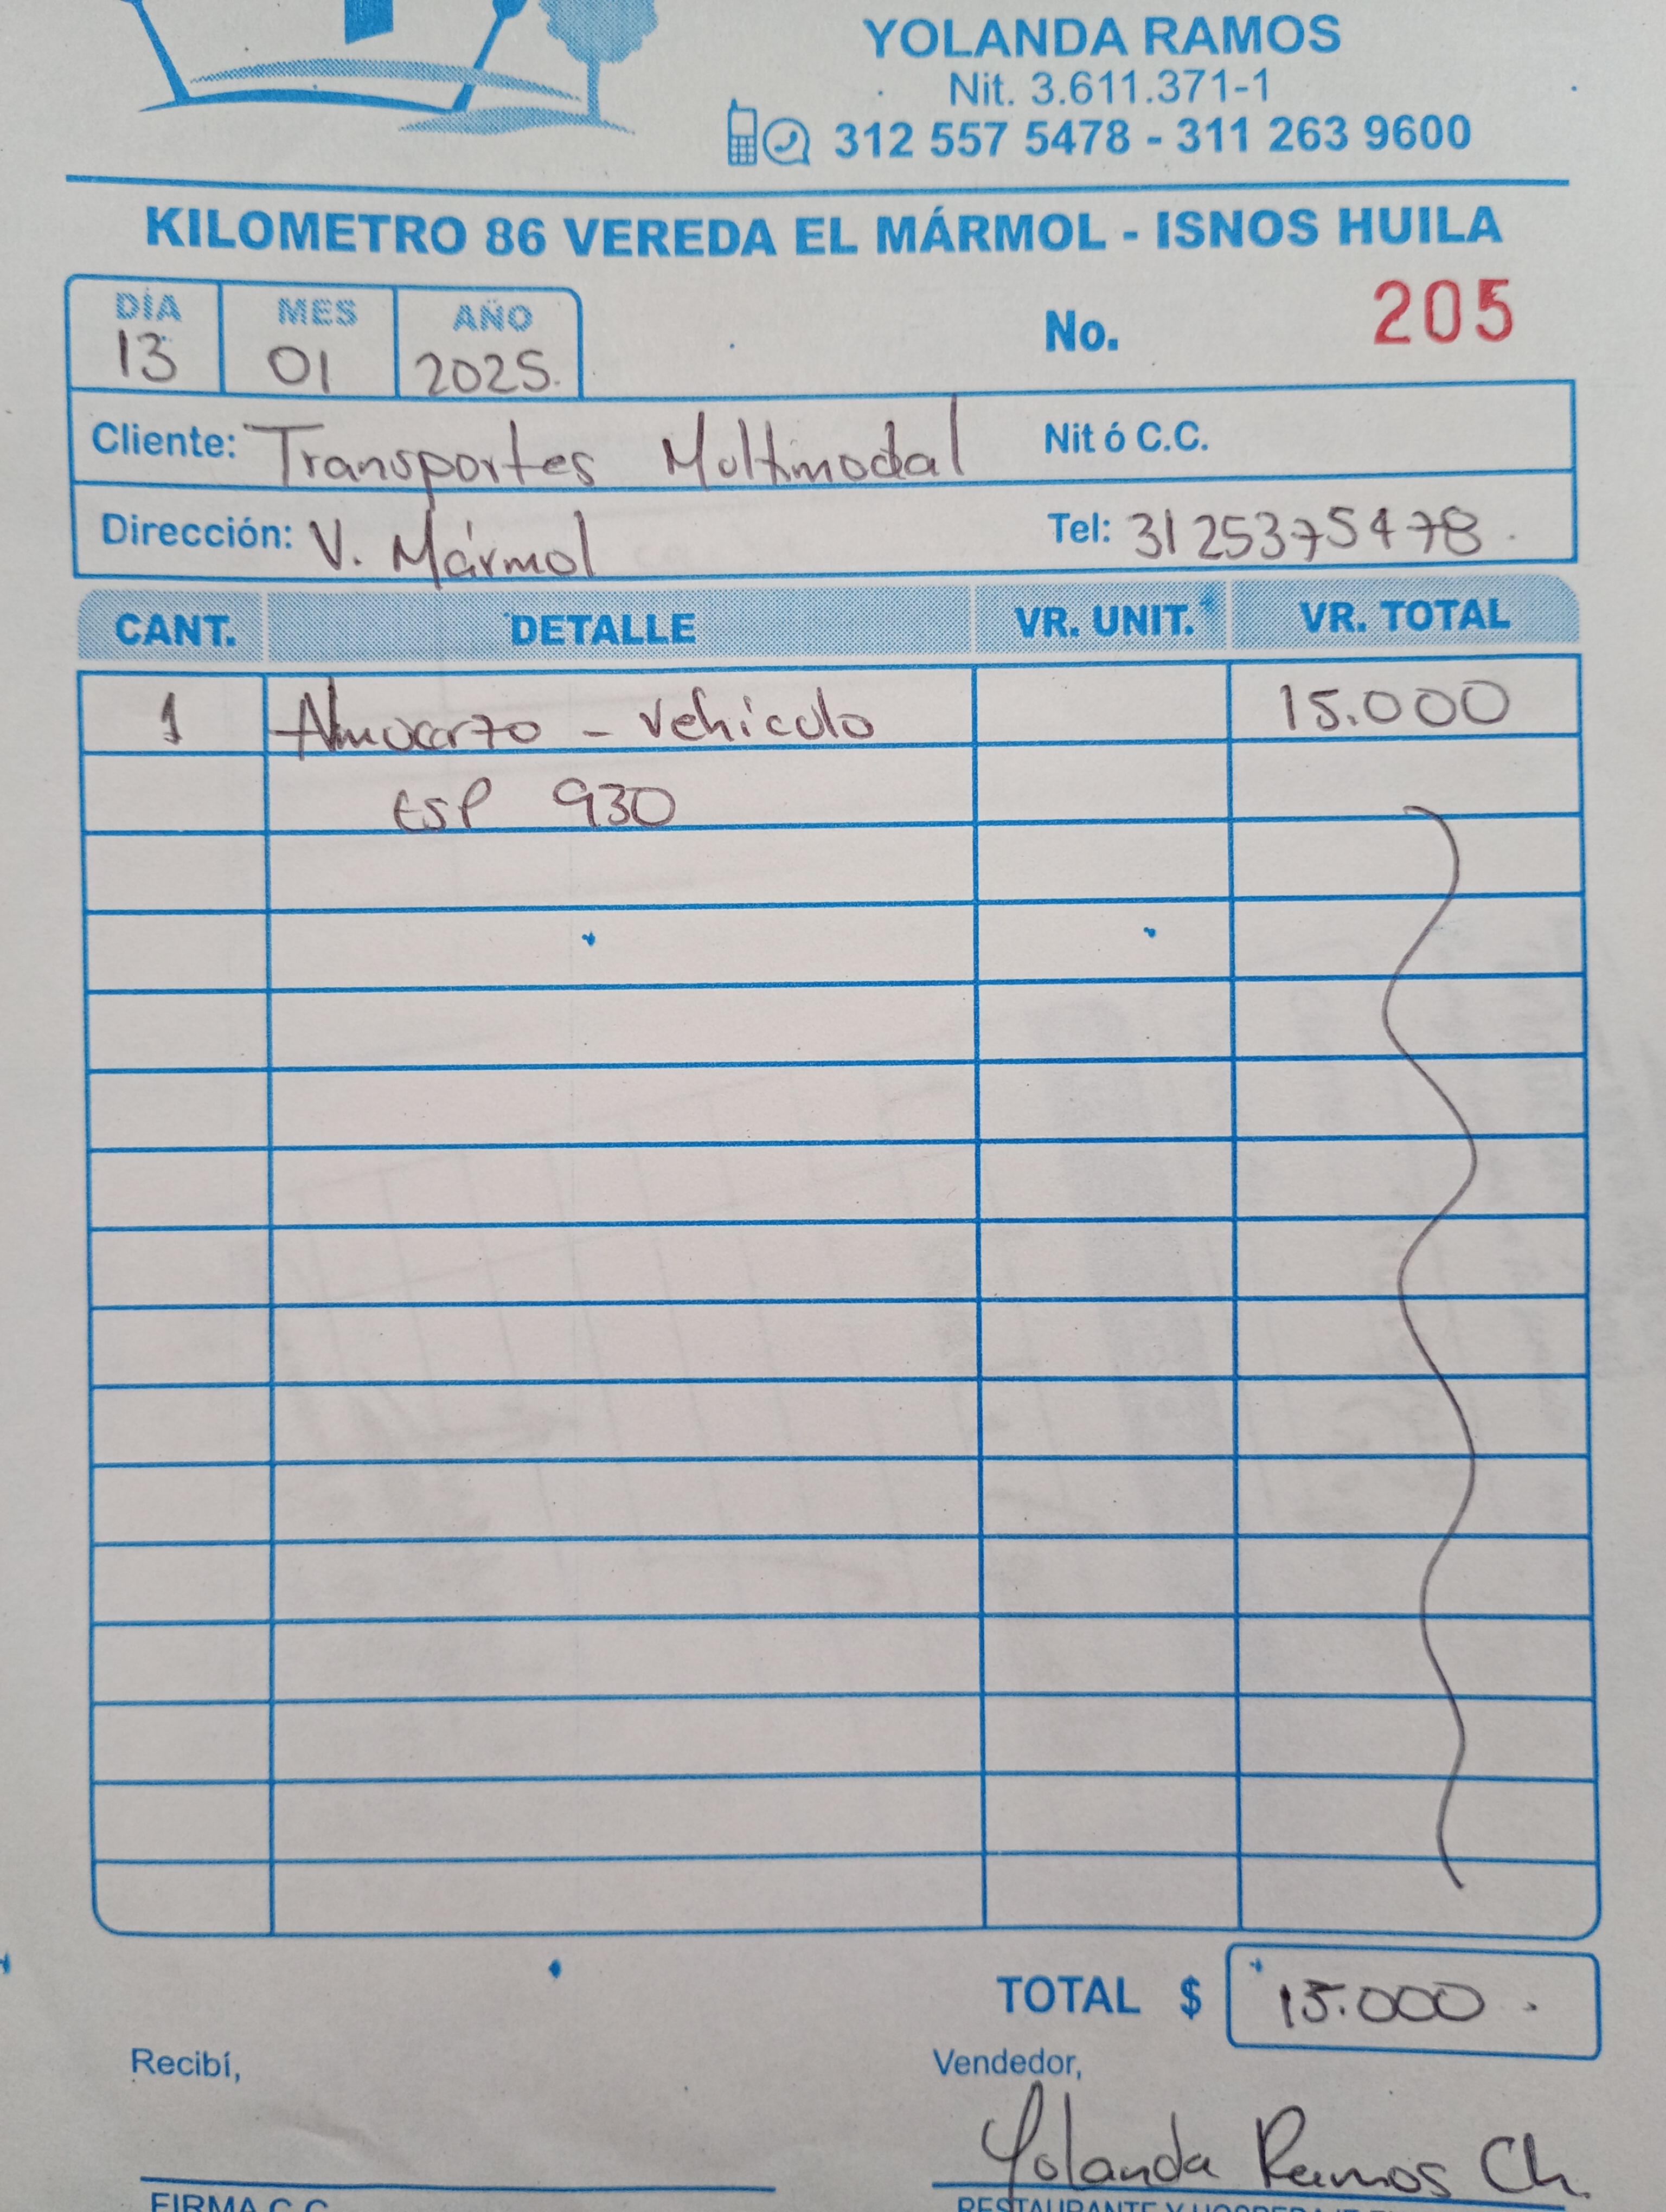 YOLANDA RAMOS
Nit. 3.611.371-1
312 557 5478 - 311 263 9600
KILOMETRO 86 VEREDA EL MÁRMOL - ISNOS HUILA
DÍA MES AÑO
13 01 2025.
No. 205
Cliente: Transportes Multimodal Nit ó C.C.
Dirección: V. Mármol Tel: 3125375478.
CANT. DETALLE VR. UNIT. VR. TOTAL
1 Almuerzo - vehiculo 15.000
ESP 930
TOTAL $ 15.000.
Recibí, Vendedor,
Yolanda Ramos Ch.
FIRMA C.C. RESTAURANTE Y HOSPEDAJE